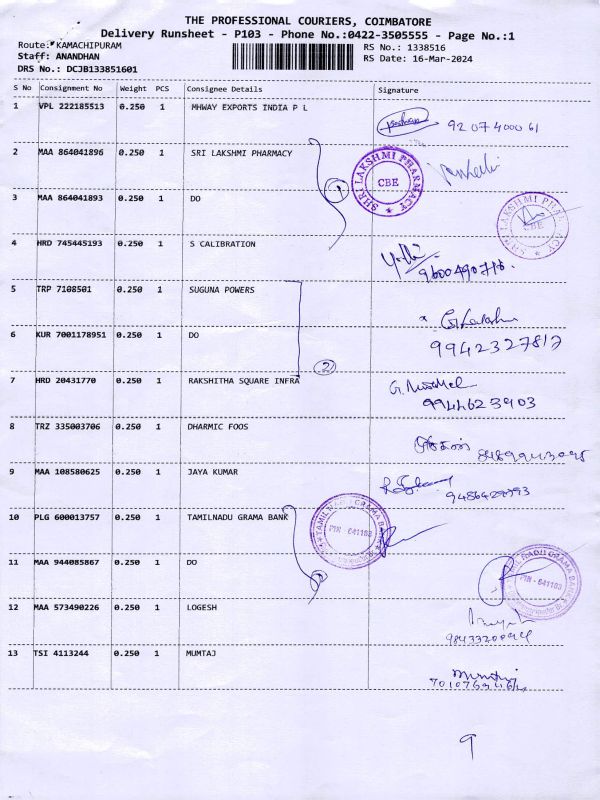 THE PROFESSIONAL COURIERS, COIMBATORE
Delivery Runsheet - P103 - Phone No.:0422-3505555 - Page No.:1
Route: KAMACHIPURAM
RS No.: 1338516
Staff: ANANDHAN
RS Date: 16-Mar-2024
DRS No.: DCJB133851601
S No Consignment No Weight PCS Consignee Details Signature
1 VPL 222185513 0.250 1 MHWAY EXPORTS INDIA P L
92 07 4000 61
2 MAA 864041896 0.250 1 SRI LAKSHMI PHARMACY
1
SHRI LAKSHMI PHARMACY
CBE
3 MAA 864041893 0.250 1 DO
CBE
4 HRD 745445193 0.250 1 S CALIBRATION
9600490716.
5 TRP 7108501 0.250 1 SUGUNA POWERS
6 KUR 7001178951 0.250 1 DO
9942327817
2
7 HRD 20431770 0.250 1 RAKSHITHA SQUARE INFRA
9944623903
8 TRZ 335003706 0.250 1 DHARMIC FOOS
9 MAA 108580625 0.250 1 JAYA KUMAR
10 PLG 600013757 0.250 1 TAMILNADU GRAMA BANK
TAMIL NADU GRAMA BANK
PIN - 641103
11 MAA 944085867 0.250 1 DO
PIN - 641103
12 MAA 573490226 0.250 1 LOGESH
13 TSI 4113244 0.250 1 MUMTAJ
9